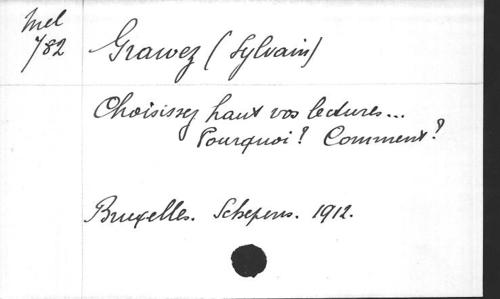 Mel
782
Grawez (Sylvain)
Choisissez haut vos lectures...
Pourquoi? Comment?
Bruxelles. Schepens. 1912.